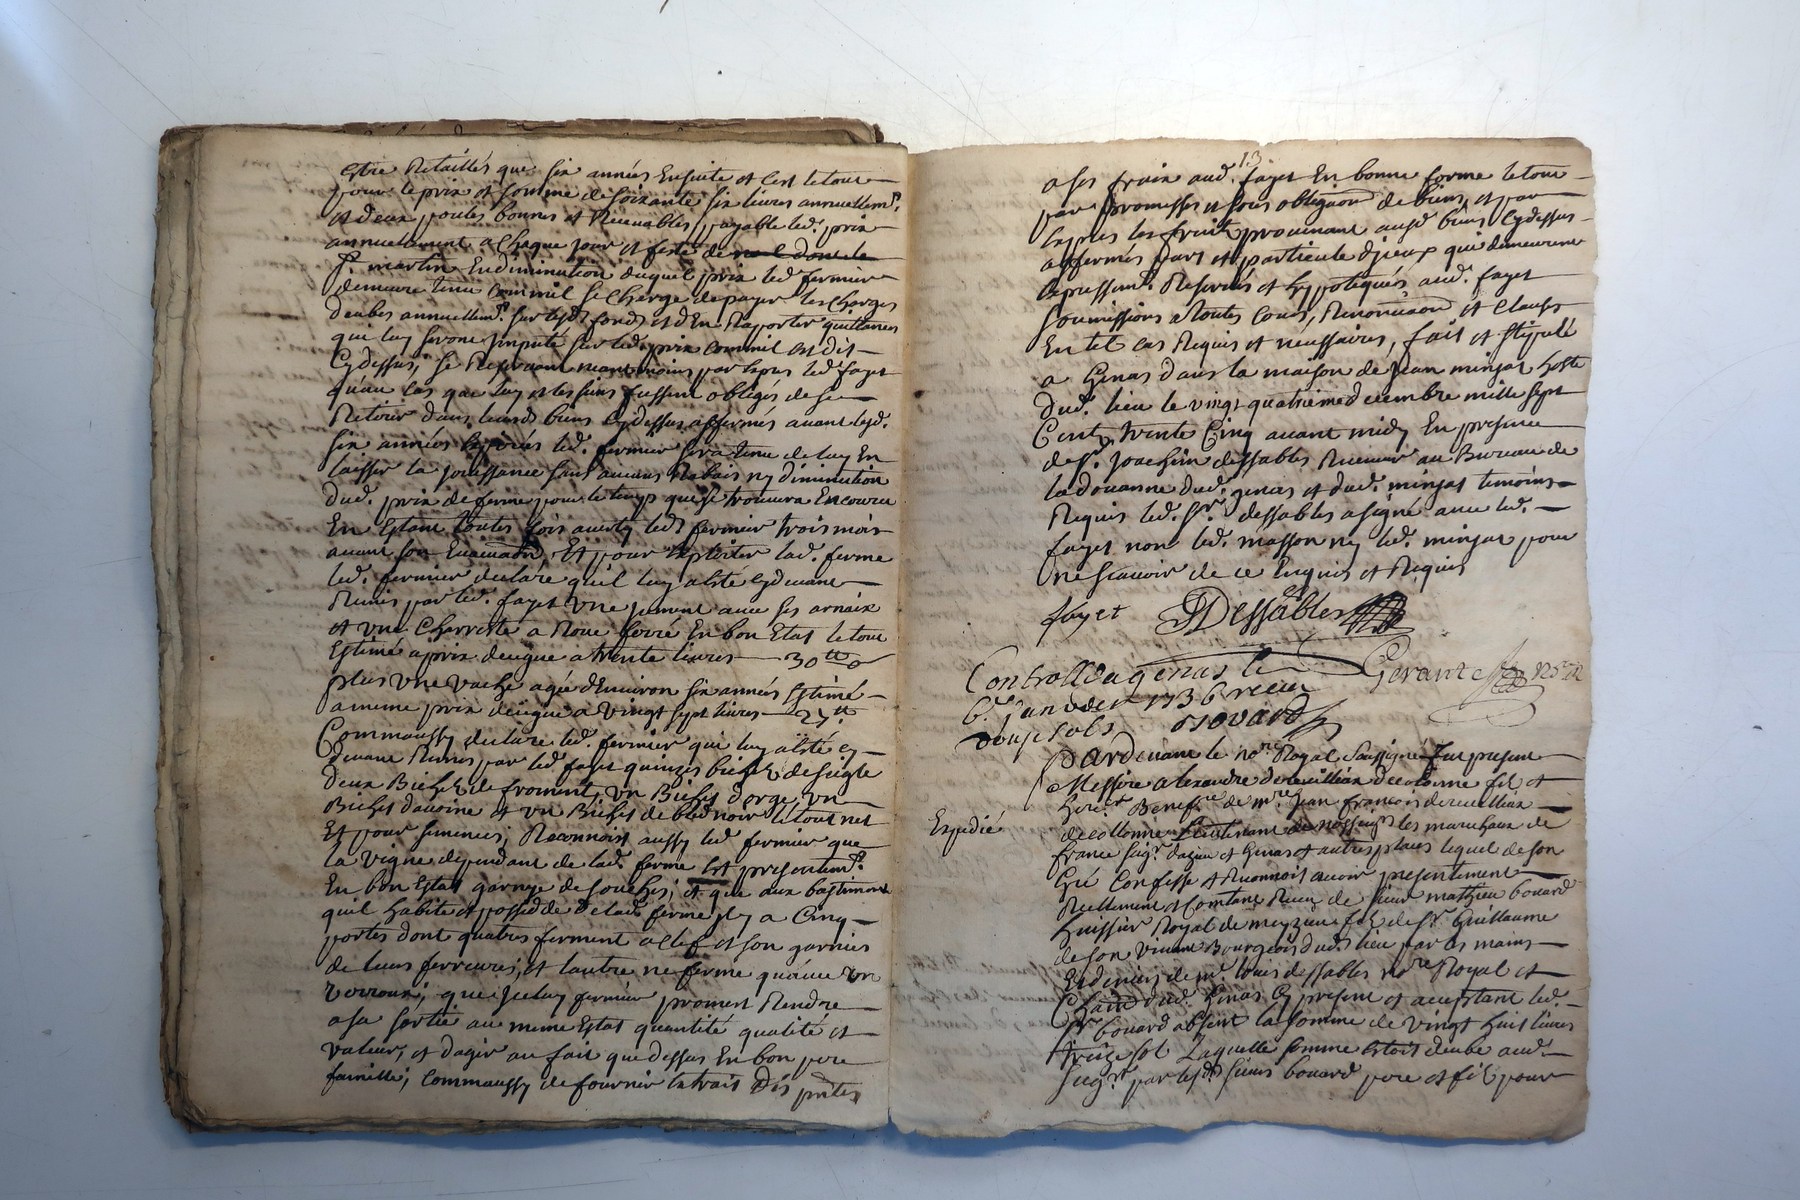 estre Retaillés que six années Ensuite et c'est le tout
pour le prix et somme de soixante six livres annuellemt.
et deux poules bonnes et Recevables, payable led. prix
annuellement a chaque jour et feste de
St. martin En diminution duquel prix led fermier
demeure tenu comme il se charge de payer les charges
deubes annuellemt. sur lesd. fonds et d'En Raporter quittances
qui luy seront imputé sur led. prix comme il est dit
Cy dessus, se Reservant neantmoins par Expres led fayet
qu'au cas que luy et les siens fussent obligés de se
Retirer dans leursd biens cy dessus affermés avant lesd.
six années Expirées led. fermier sera tenu de luy En
laisser la jouissance sans aucuns Rabais ny diminution
dud. prix de ferme pour le temps que se trouvera Encouru
En Estant toutes fois averty led. fermier trois mois
avant son Et pour Exploiter lad. ferme
led. fermier declare qu'il luy a esté cy devant
Remis par led. fayet une jument avec ses arnaix
et une charrette a Roue ferré En bon Estat le tout
Estimé a prix a trente livres 30 tt
plus une vache agée d'Environ six années Estimé
a meme prix a vingt sept livres 27 tt
Comm'aussy declare led. fermier qui luy a esté cy
devant Remis par led fayet quinzes bichet de seigle
deux Bichet de froment, un Bichet d'orge, un
Bichet davoine et un Bichet de bled noir le tout net
Et pour semences; Reconnoist aussy led fermier que
la vigne dependant de lad. ferme Est presentemt.
En bon Estat garnye de souches; et que aux bastiments
quil habite et possedde de lad. ferme il y a Cinq
portes dont quatres ferment a clef et son garnies
de leurs ferrures; et l'autre ne ferme qu'avec un
verroux; que iceluy fermier promest Rendre
a sa sortie au meme Estat quantité qualité et
valeur, et d'agir au fait que dessus En bon pere
famille; comm'aussy de fournir Extrait Des pntes
13
a ses fraix aud. fayet En bonne forme le tout
par promesses et sous obligaon de biens, et par
Expres les fruits provenant ausd biens cy dessus
affermés part et particule d'jceux qui demeurent
Expressemt. Reservés et hypotequés aud. fayet
soumissions a toutes cours, Renonciaon et clauses
En tel cas Requis et necessaires, fait et stipulé
a Genas dans la maison de Jean minjat hoste
dud. lieu le vingt quatrieme decembre mille sept
Cents trente Cinq avant midy En presence
de sr. Joachim dessables Receveur au Bureau de
la doüanne dud. genas et dud. minjat temoins
Requis led. sr. dessables a signé avec led.
fayet non led. masson ny led. minjat pour
ne scavoir de ce Enquis et Requis
fayet Dessables
Controllé a genas le Gerante
6e. Janvier 1736 Receu
douze sols Bovard
Pardevant le nore. Royal soussigné fut present
Messire alexandre de revillias de colonne fils et
Expedié
heritr. Beneffre. de mre. Jean francois de revillias
de collonne Lieutenant de nosseigrs les marechaux de
france seigr. d'azieu et Genas et autres places lequel de son
Gré Confesse et Reconnoist avoir presentement
Reellement et Comtant Receu de sieur mathieu bovard
huissier Royal de meyzieu fils de sr. Guillaume
de son vivant Bourgeois dud. lieu par les mains
Et deniers de me. louis dessables nore. Royal et
Chatn. dud. Genas cy present et acceptant led.
sr. bovard absent la somme de vingt huit livres
treize sol Laquelle somme estoit deube aud.
seigr. par lesd. sieurs bovard pere et fils pour